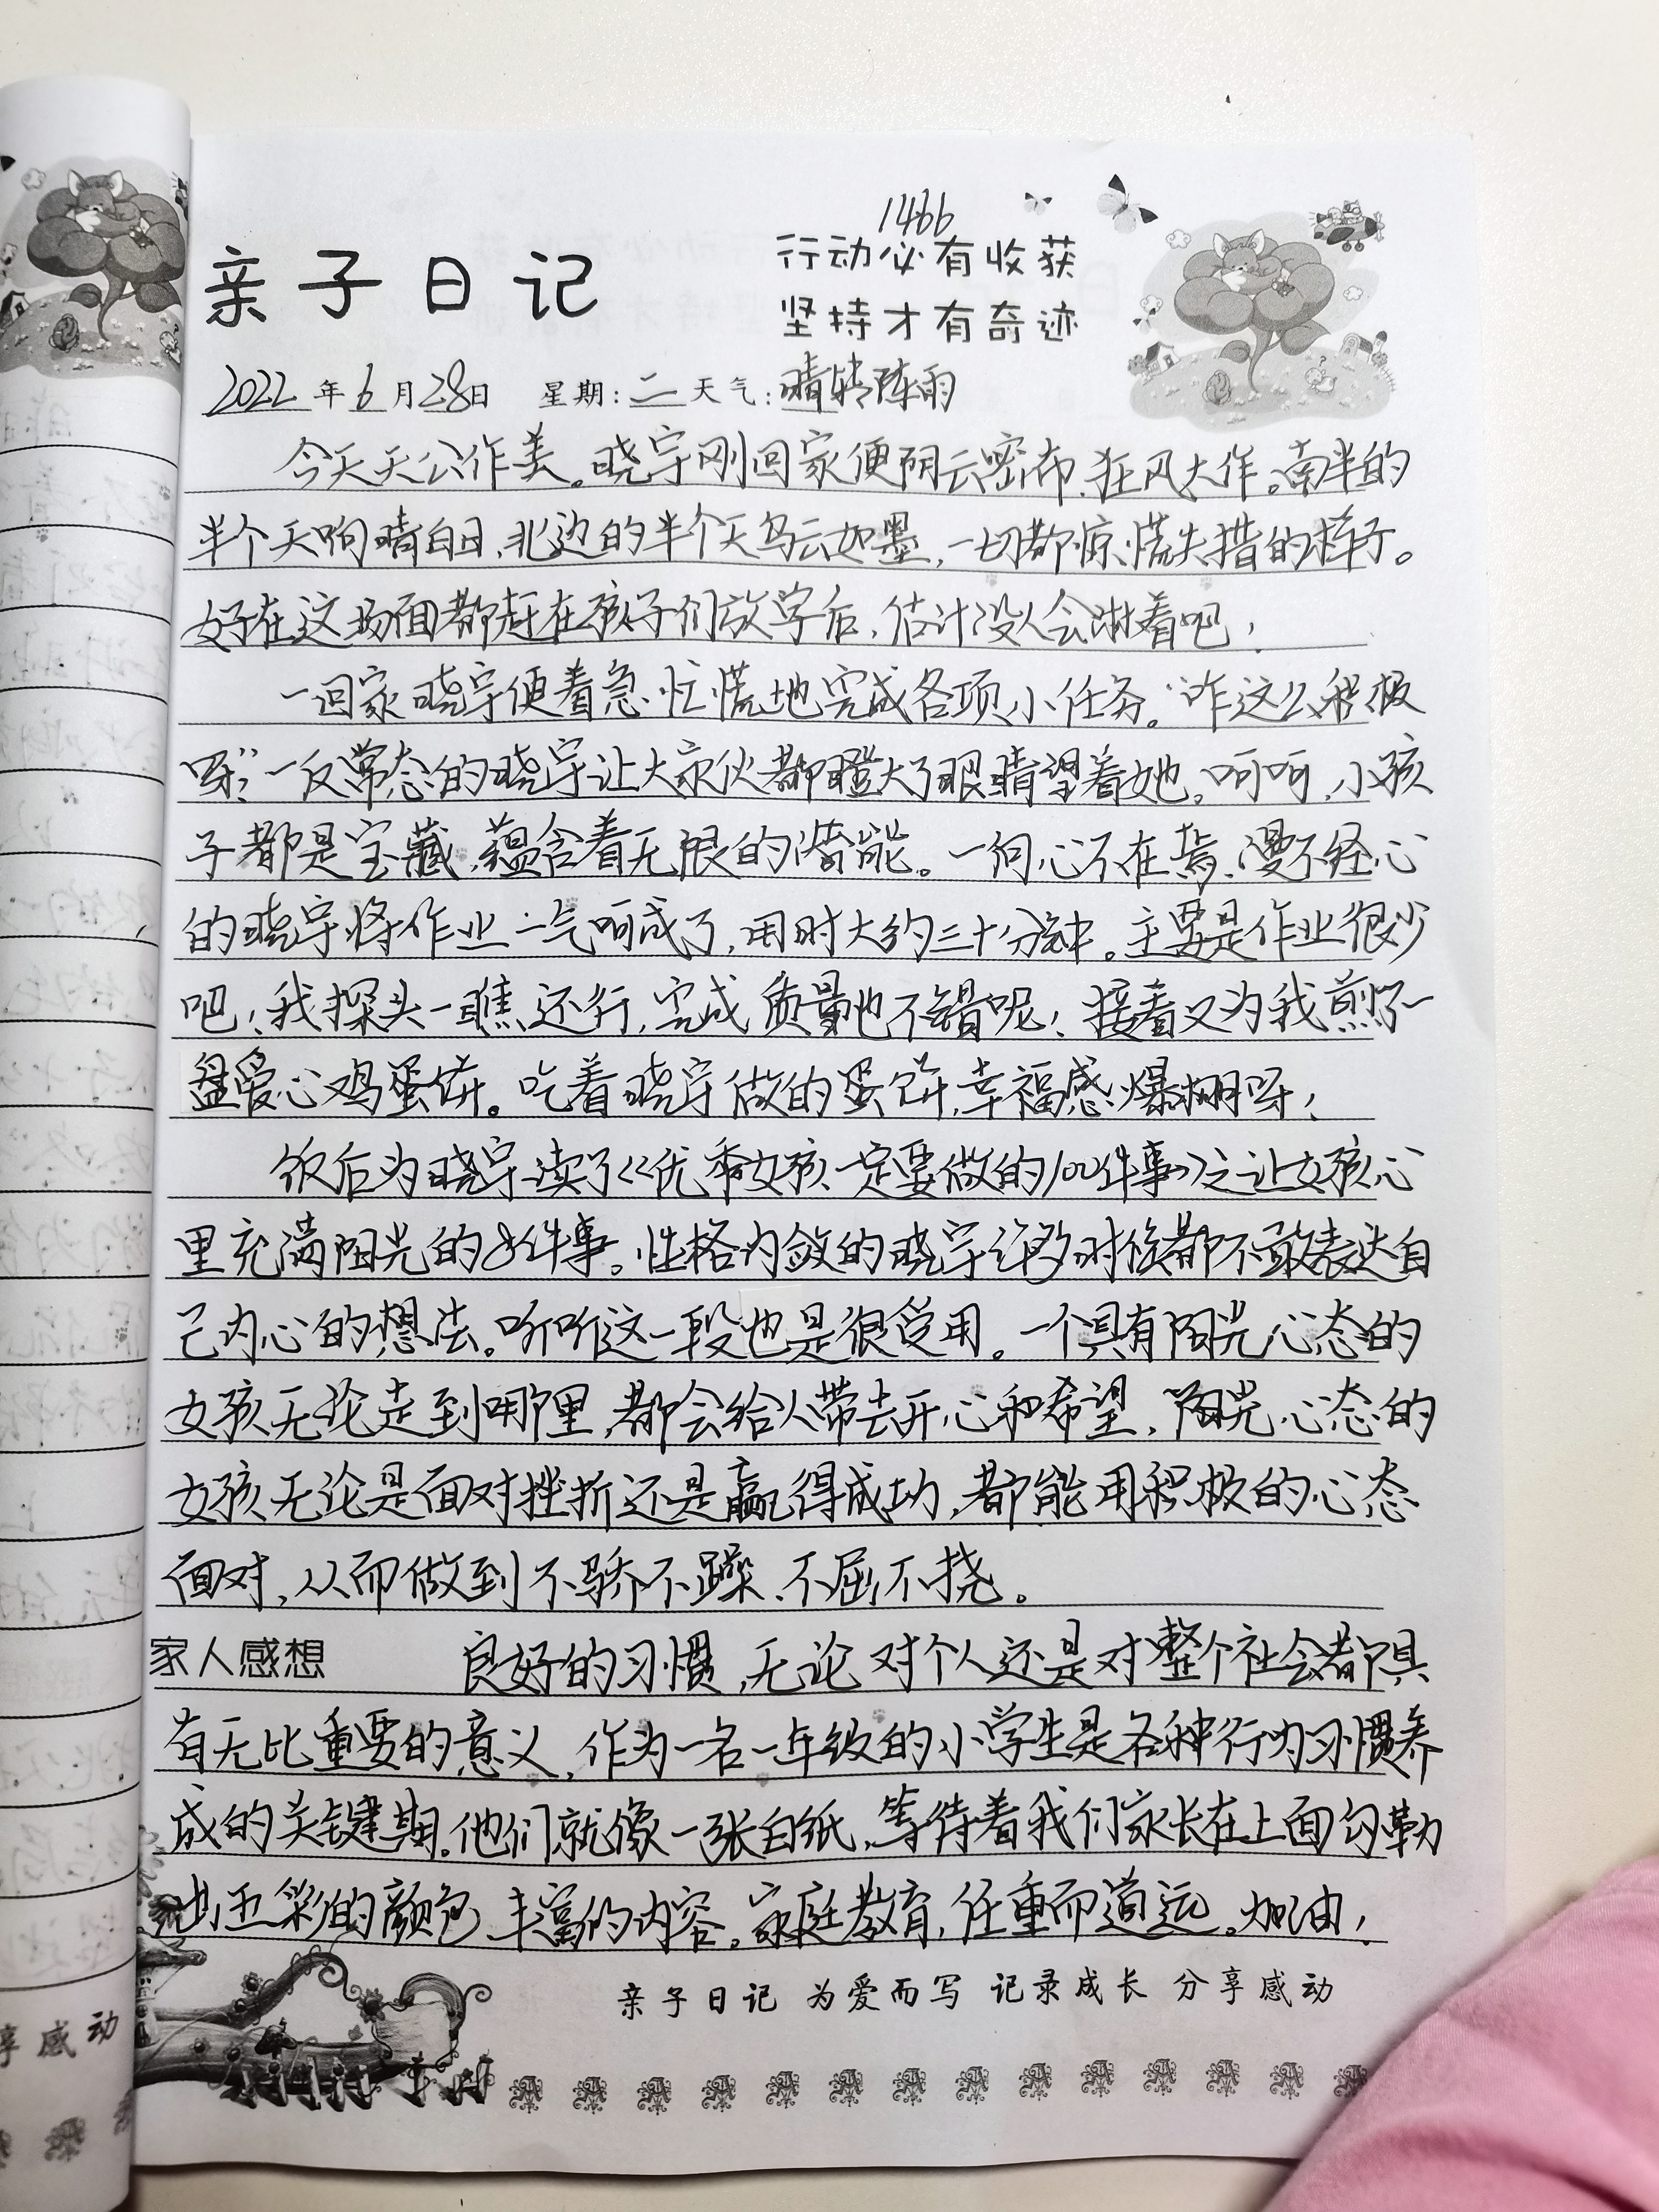 1466
亲子日记
行动必有收获
坚持才有奇迹
2022年6月28日 星期:二 天气:晴转阵雨
今天天公作美。晓宇刚回家便阴云密布、狂风大作。南半的
半个天响晴白日,北边的半个天乌云如墨,一切都惊慌失措的样子。
好在这场面都赶在孩子们放学后,估计没人会淋着吧!
一回家晓宇便着急忙慌地完成各项小任务。“咋这么积极
呀?”一反常态的晓宇让大家伙都瞪大了眼睛望着她。呵呵,小孩
子都是宝藏,蕴含着无限的潜能。一向心不在焉、漫不经心
的晓宇将作业一气呵成了,用时大约三十分钟。主要是作业很少
吧!我探头一瞧,还行,完成质量也不错呢!接着又为我煎了一
盘爱心鸡蛋饼。吃着晓宇做的蛋饼,幸福感爆棚呀!
饭后为晓宇读了《优秀女孩一定要做的100件事》之让女孩心
里充满阳光的8件事。性格内敛的晓宇许多时候都不敢表达自
己内心的想法。听听这一段也是很受用。一个具有阳光心态的
女孩无论走到哪里,都会给人带去开心和希望,阳光心态的
女孩无论是面对挫折还是赢得成功,都能用积极的心态
面对,从而做到不骄不躁、不屈不挠。
家人感想 良好的习惯,无论对个人还是对整个社会都具
有无比重要的意义,作为一名一年级的小学生是各种行为习惯养
成的关键期。他们就像一张白纸,等待着我们家长在上面勾勒
出五彩的颜色、丰富的内容。家庭教育,任重而道远。加油!
亲子日记 为爱而写 记录成长 分享感动
享感动